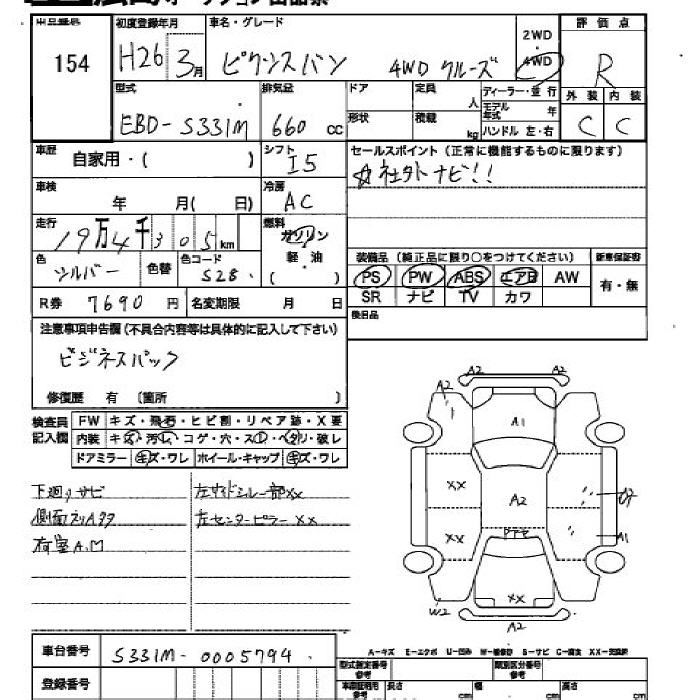 初度登録年月 車名・グレード 2WD 評価点
154 H26 3月 ピクシスバン 4WD クルーズ 4WD R
型式 排気量 ドア 定員 人 ディーラー・並行 外装 内装
EBD-S331M 660 cc 形状 積載 kg モデル年式 年 C C
ハンドル 左・右
車歴 自家用・( ) シフト I5 セールスポイント(正常に機能するものに限ります)
車検 年 月( 日) 冷房 AC ☆社外ナビ!!
走行 19万4千305km 燃料 ガソリン
色 シルバー 色替 色コード S28 軽・油 ( ) 装備品(純正品に限り○をつけてください) 新車保証書
PS PW ABS エアB AW 有・無
R券 7690円 名変期限 月 日 SR ナビ TV カワ
注意事項申告欄(不具合内容等は具体的に記入して下さい) 後日品
ビジネスパック
修復歴 有 〔箇所 〕
検査員記入欄 FW キズ・飛石・ヒビ割・リペア跡・X要
内装 キズ・汚レ・コゲ・穴・スレ・ヘタリ・破レ
ドアミラー キズ・ワレ ホイール・キャップ キズ・ワレ
下廻りサビ 左サイドシル一部XX
側面 左センターピラーXX
荷室A.M
A2 A2
A2 A2
A1
XX A2
XX A1
XX
W2 A2
A-キズ E-エクボ U-凹み W-補修跡 S-サビ C-腐食 XX-交換済
車台番号 S331M-0005794
登録番号 型式指定番号 類別区分番号
長さ cm 幅 cm 高さ cm